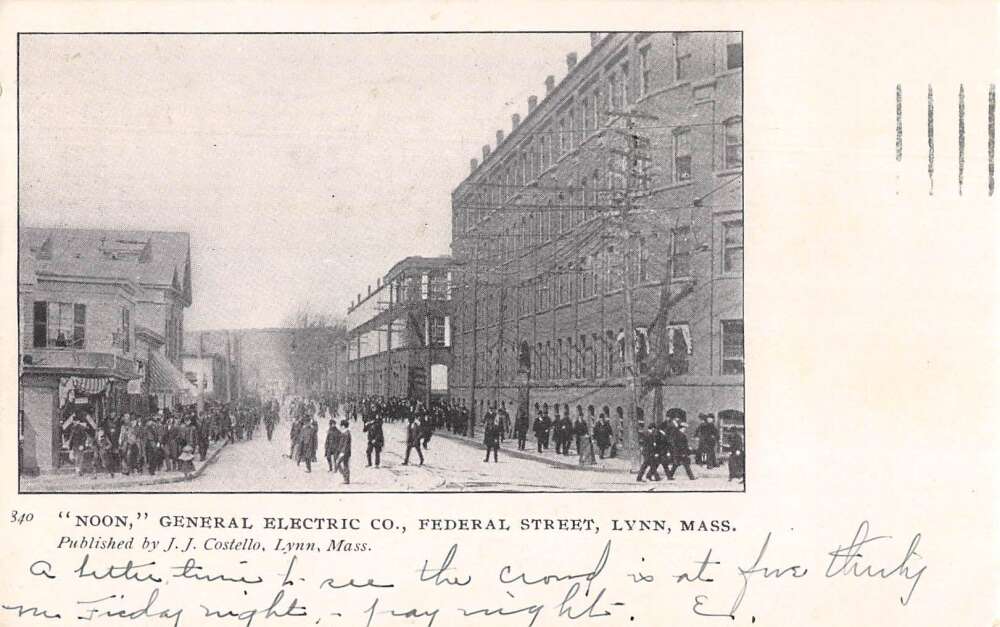 340 "NOON," GENERAL ELECTRIC CO., FEDERAL STREET, LYNN, MASS.
Published by J. J. Costello, Lynn, Mass.
A better time to see the crowd is at five thirty
on Friday night, - pay night. E.